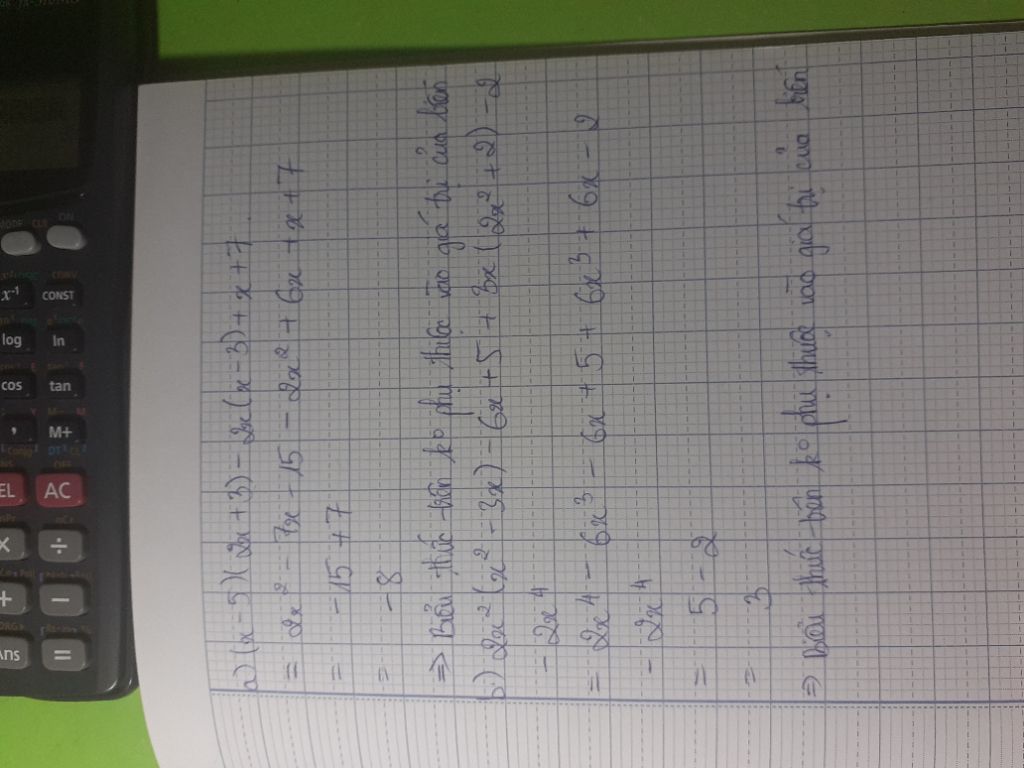 a) (x - 5)(2x + 3) - 2x(x - 3) + x + 7.
= 2x² - 7x - 15 - 2x² + 6x + x + 7
= -15 + 7
= -8
=> Biểu thức trên k° phụ thuộc vào giá trị của biến
b) 2x²(x² - 3x) - 6x + 5 + 3x(2x² + 2) - 2
- 2x⁴
= 2x⁴ - 6x³ - 6x + 5 + 6x³ + 6x - 2
- 2x⁴
= 5 - 2
= 3
=> Biểu thức trên k° phụ thuộc vào giá trị của biến
MODE
CLR
ON
x⁻¹
CONST
log
ln
cos
tan
,
M+
EL
AC
×
÷
+
−
Ans
=